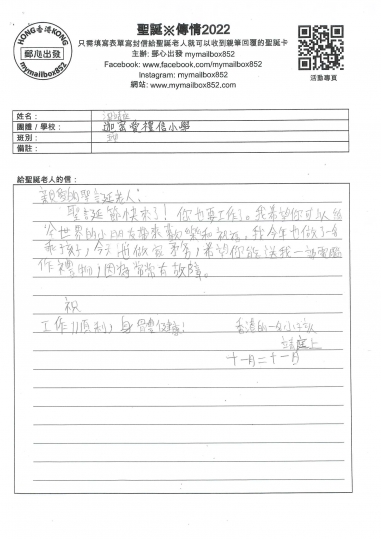 聖誕※傳情2022
只需填寫表單寫封信給聖誕老人就可以收到親筆回覆的聖誕卡
主辦: 郵心出發 mymailbox852
Facebook: www.facebook.com/mymailbox852
Instagram: mymailbox852
網站: www.mymailbox852.com
HONG香港KONG
郵心出發
mymailbox852
活動專頁
姓名：
團體 / 學校： 迦密愛禮信小學
班別：
備註：
給聖誕老人的信：
親愛的聖誕老人：
聖誕節快來了！你也要工作了。我希望你可以
給世界的小朋友帶來歡樂和祝福。我今年也做了一個
乖孩子，今天再做家務，希望你能送我一部電腦
作禮物，因為常常有故障。
祝
工作順利，身體健康！
香港的一名小朋友
上
十一月二十一日